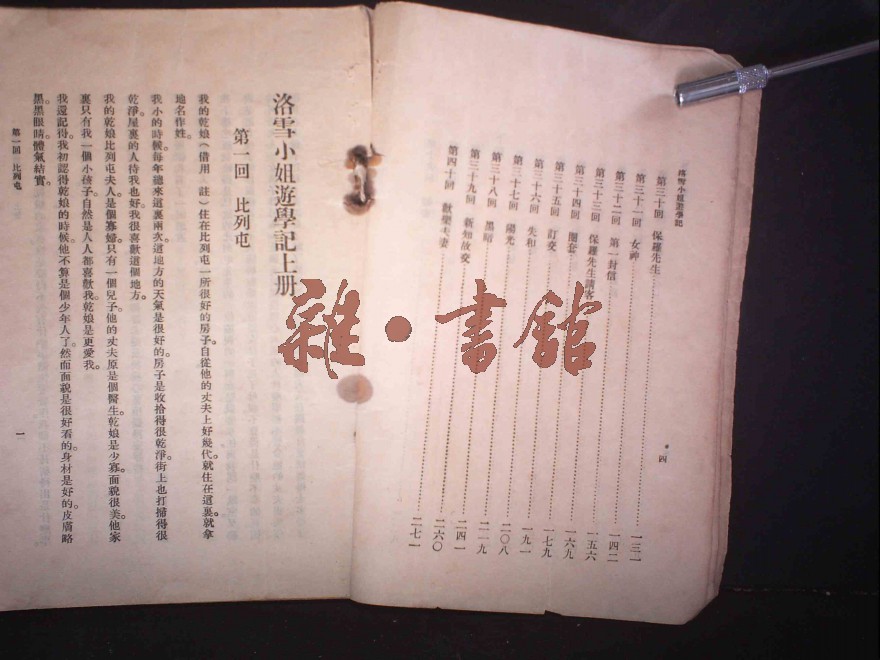 洛雪小姐遊學記
第三十回 保羅先生 一三一
第三十一回 女神 一四二
第三十二回 第一封信 一五六
第三十三回 保羅先生請客 一六九
第三十四回 圈套 一七九
第三十五回 訂交 一九一
第三十六回 失和 二〇八
第三十七回 陽光 二一九
第三十八回 黑暗 二四一
第三十九回 新知故交 二六〇
第四十回 歡樂夫妻 二七一
四
洛雪小姐遊學記上册
第一回 比列屯
我的乾娘(借用 註)住在比列屯一所很好的房子。自從他的丈夫上好幾代。就住在這裏。就拿
地名作姓。
我小的時候。每年總來這裏兩次。這地方的天氣是很好的。房子是收拾得很乾淨。街上也打掃得很
乾淨。屋裏的人待我也好。我很喜歡這個地方。
我的乾娘比列屯夫人。是個寡婦。只有一個兒子。他的丈夫原是個醫生。乾娘是少寡。面貌很美。他家
裏只有我一個小孩子。自然是人人都喜歡我。乾娘是更愛我。
我還記得。我初認得乾娘的時候。他不算是個少年人了。然而面貌是很好看的。身材是好的。皮膚略
黑。黑眼睛。體氣結實。
第一回 比列屯
一
雜·書館